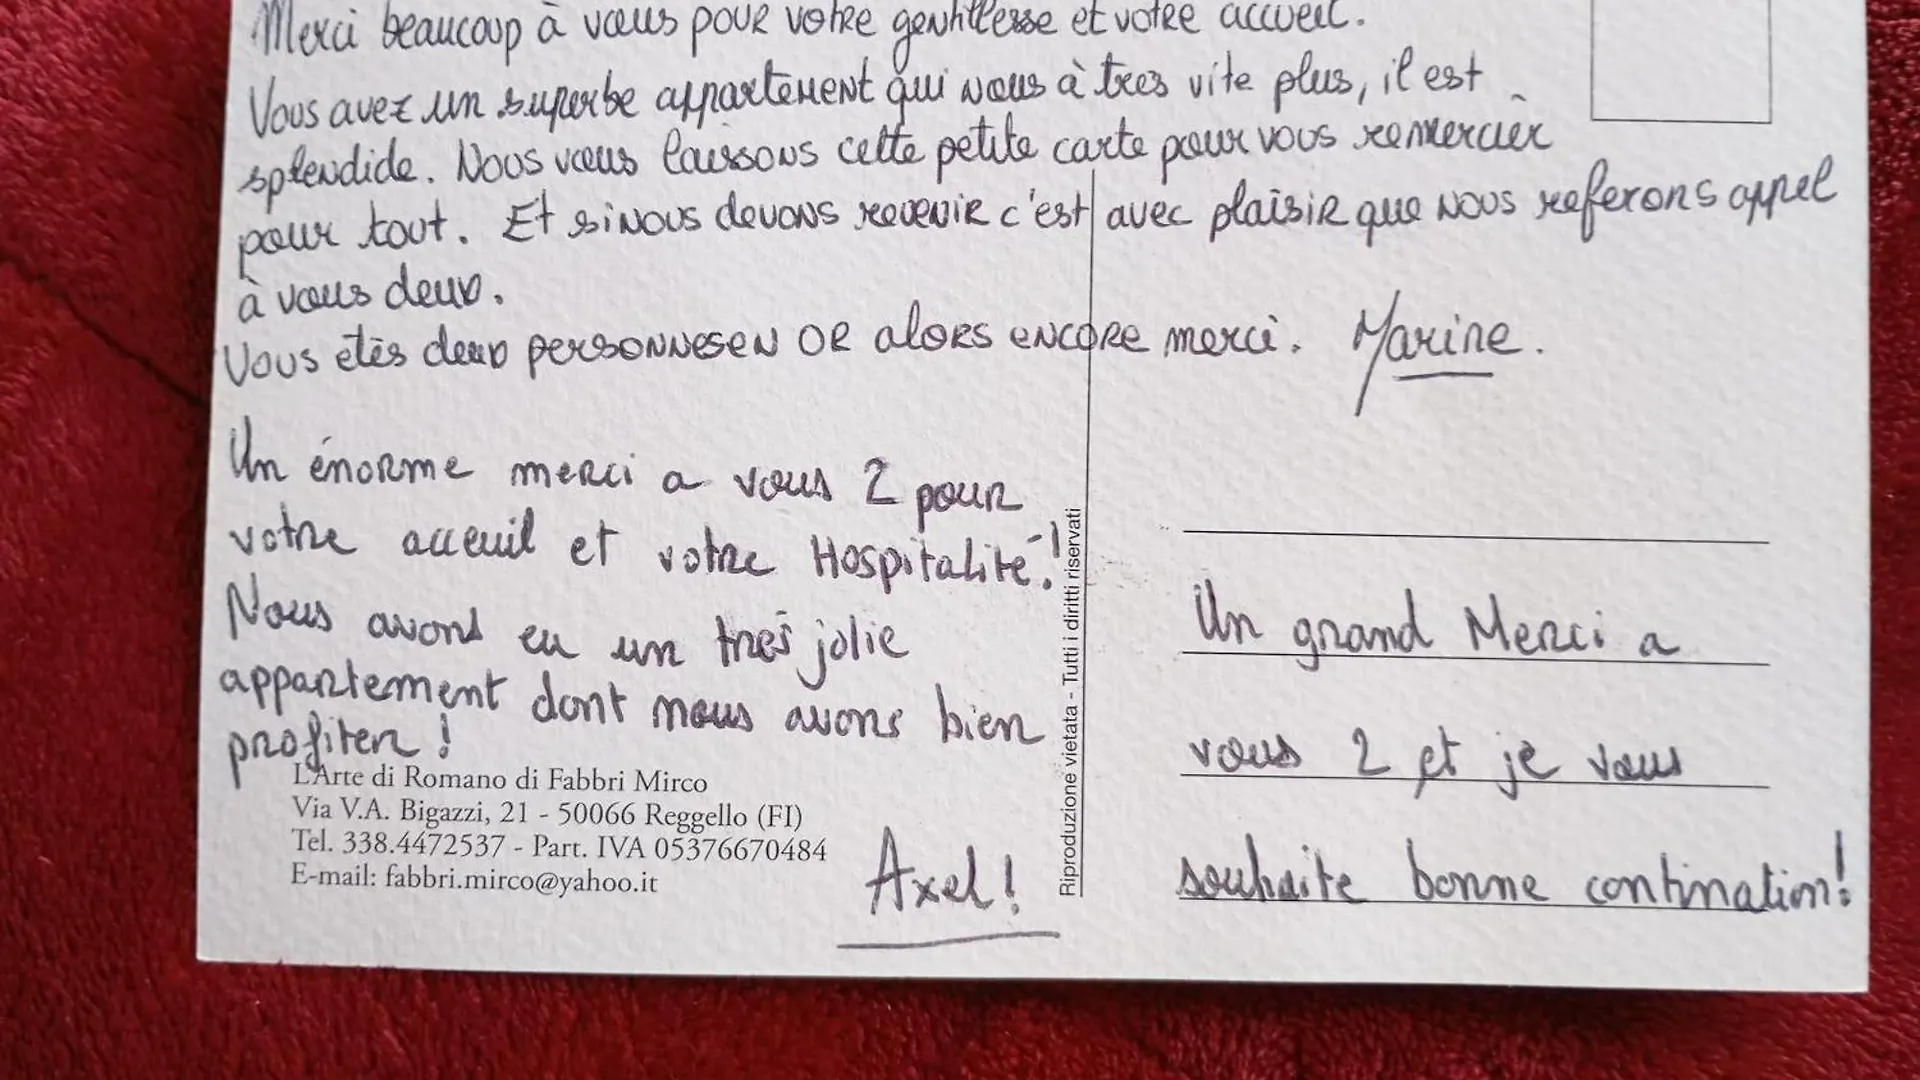 Merci beaucoup à vous pour votre gentillesse et votre accueil.
Vous avez un superbe appartement qui nous à tres vite plus, il est
splendide. Nous vous laissons cette petite carte pour vous remercier
pour tout. Et si nous devons revenir c'est avec plaisir que nous referons appel
à vous deux.
Vous etês deux personnes en OR alors encore merci. Marine.
Un énorme merci a vous 2 pour
votre acceuil et votre Hospitalité!
Nous avons eu un très jolie
appartement dont nous avons bien
profiter !
L'Arte di Romano di Fabbri Mirco
Via V.A. Bigazzi, 21 - 50066 Reggello (FI)
Tel. 338.4472537 - Part. IVA 05376670484
E-mail: fabbri.mirco@yahoo.it
Axel !
Riproduzione vietata - Tutti i diritti riservati
Un grand Merci a
vous 2 et je vous
souhaite bonne continuation!